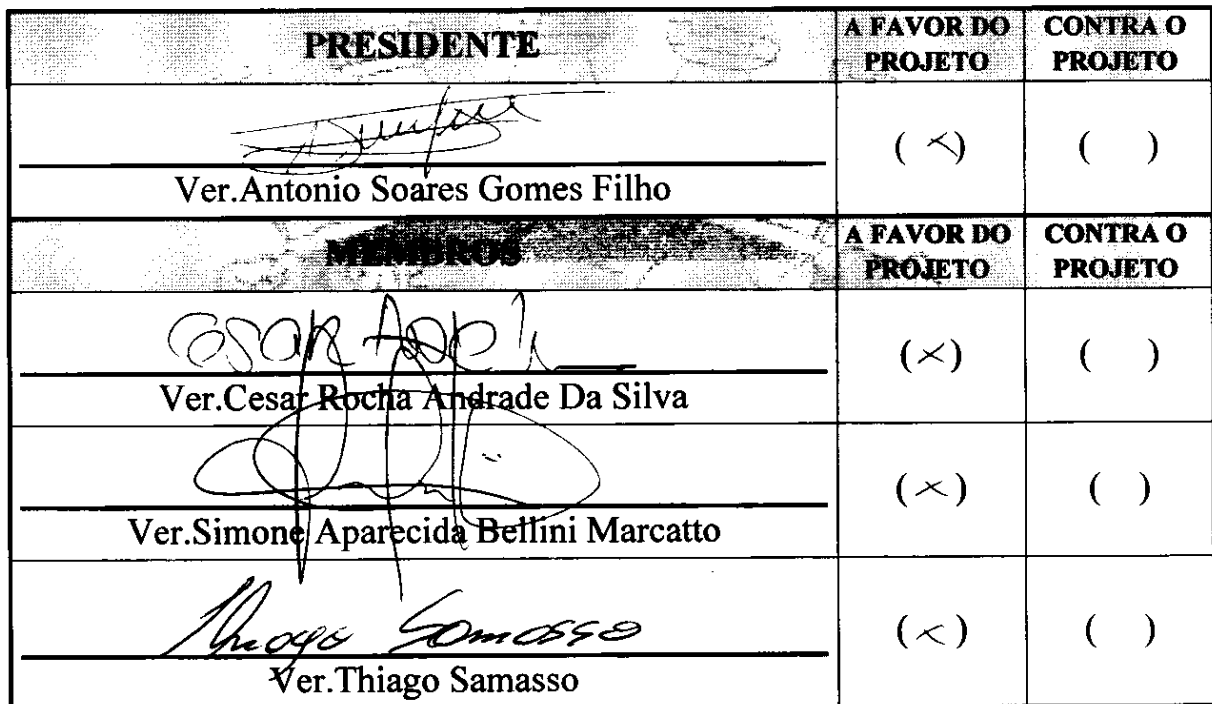 PRESIDENTE A FAVOR DO PROJETO CONTRA O PROJETO
( × ) ( )
Ver.Antonio Soares Gomes Filho
MEMBROS A FAVOR DO PROJETO CONTRA O PROJETO
( × ) ( )
Ver.Cesar Rocha Andrade Da Silva
( × ) ( )
Ver.Simone Aparecida Bellini Marcatto
Thiago Samasso ( × ) ( )
Ver.Thiago Samasso